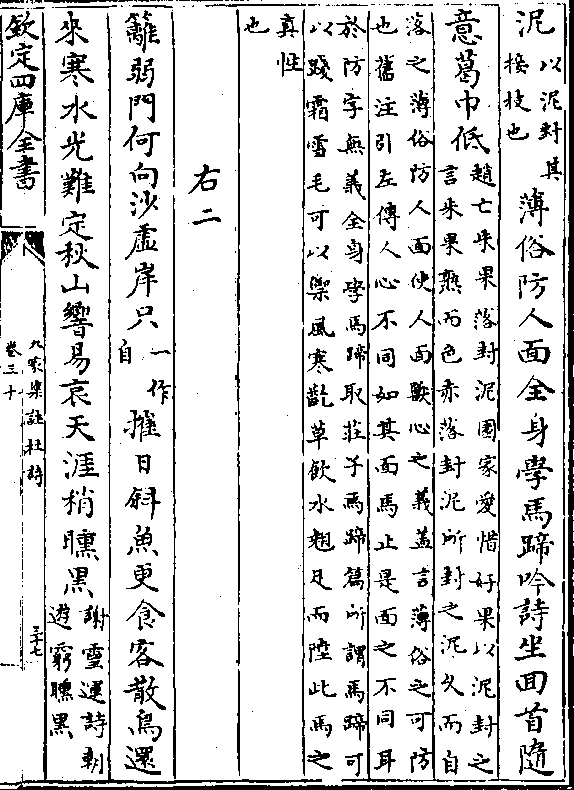 泥以泥封其
接枝也
薄俗防人面全身學馬蹄吟詩坐回首隨
意葛巾低
趙云朱果落封泥園家愛惜好果以泥封之
言朱果熟而色赤落封泥所封之泥久而自
落之薄俗防人面使人面獸心之義蓋言薄俗之可防
也舊注引左傳人心不同如其面焉止是面之不同耳
於防字無義全身學馬蹄取莊子馬蹄篇所謂馬蹄可
以踐霜雪毛可以禦風寒齕草飲水翹足而陸此馬之
真性
也
右二
籬弱門何向沙虛岸只
一作
自
摧日斜魚更食客散鳥還
來寒水光難定秋山響易哀天涯稍曛黑
謝靈運詩朝
遊窮曛黑
欽定四庫全書
九家集註杜詩
卷三十
三十七